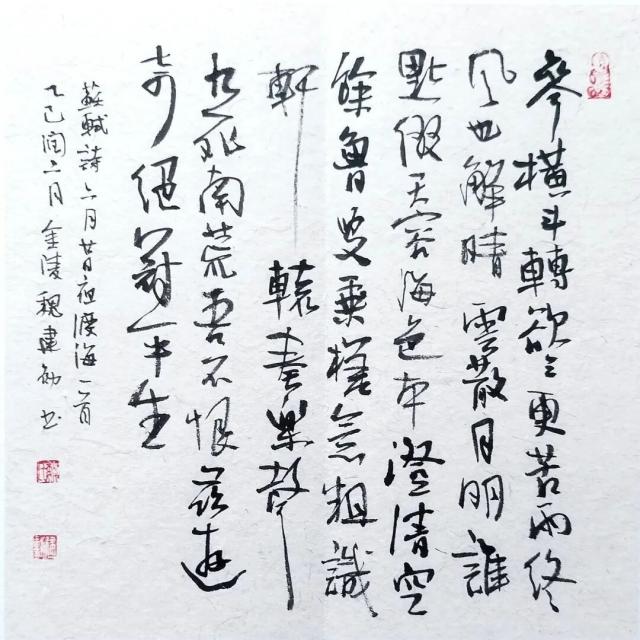 參橫斗轉欲三更苦雨終
风也解晴雲散月明誰
點綴天容海色本澄清空
餘魯叟乘桴意粗識
軒轅奏樂聲
九死南荒吾不恨茲遊
奇絕冠平生
蘇軾詩六月廿日夜渡海一首
乙巳闰六月金陵魏建书